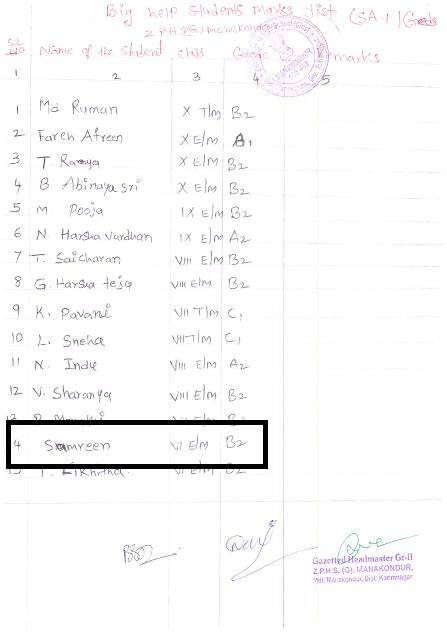 Big help students marks list (SA-1) Grads
Z P H S (G) Manakondur
S.L No Name of the Student class Grade Remarks
1 2 3 4 5
1 Md Ruman X T/m B2
2 Fareh Afreen X E/m A1
3 T. Ramya X E/m B2
4 B. Abinaya sri X E/m B2
5 M Pooja IX E/m B2
6 N. Harsha vardhan IX E/m A2
7 T. Saicharan VIII E/m B2
8 G. Harsha teja VIII E/m B2
9 K. Pavani VII T/m C1
10 L. Sneha VII T/m C1
11 N. Indu VIII E/m A2
12 V. Sharanya VIII E/m B2
13
4 Samreen VI E/m B2
15 T. Likhitha VI E/m B2
Gazetted Headmaster Gr-II
Z.P.H.S. (G). MANAKONDUR,
Mdl: Manakondur, Dist: Karimnagar